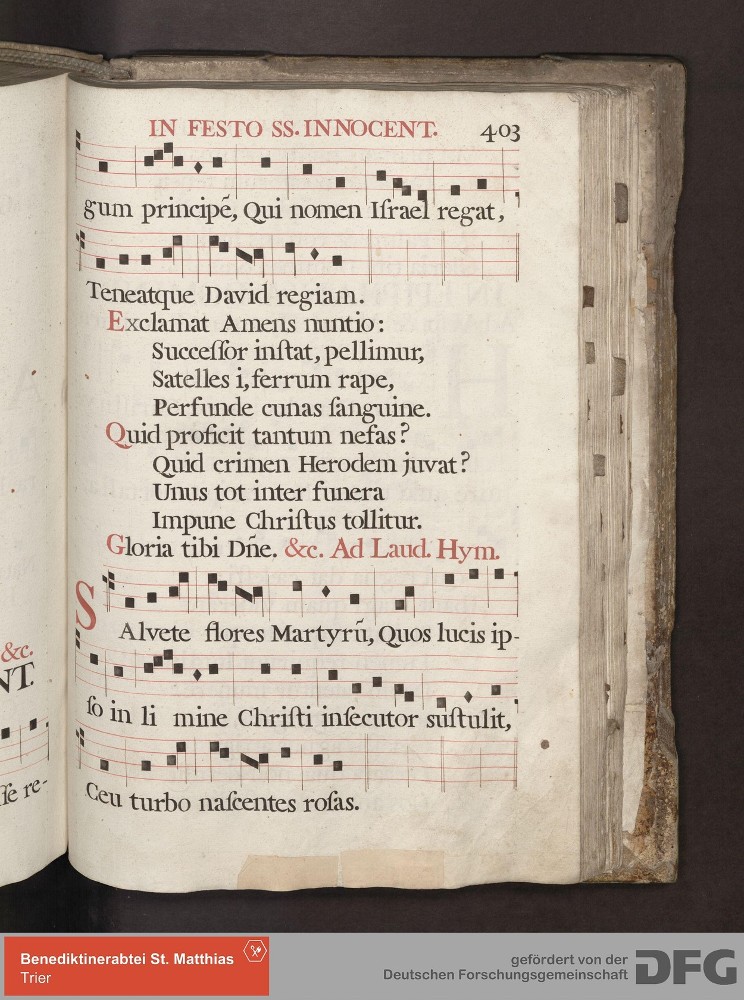 IN FESTO SS. INNOCENT. 403
gum principẽ, Qui nomen Iſrael regat,
Teneatque David regiam.
Exclamat Amens nuntio:
Succeſſor inſtat, pellimur,
Satelles i, ferrum rape,
Perfunde cunas ſanguine.
Quid proficit tantum nefas?
Quid crimen Herodem juvat?
Unus tot inter funera
Impune Chriſtus tollitur.
Gloria tibi Dñe. &c. Ad Laud. Hym.
SAlvete flores Martyrũ, Quos lucis ip-
ſo in li mine Chriſti inſecutor suſtulit,
Ceu turbo naſcentes roſas.
&c.
NT.
ſſe re-
Benediktinerabtei St. Matthias
Trier
gefördert von der
Deutschen Forschungsgemeinschaft
DFG